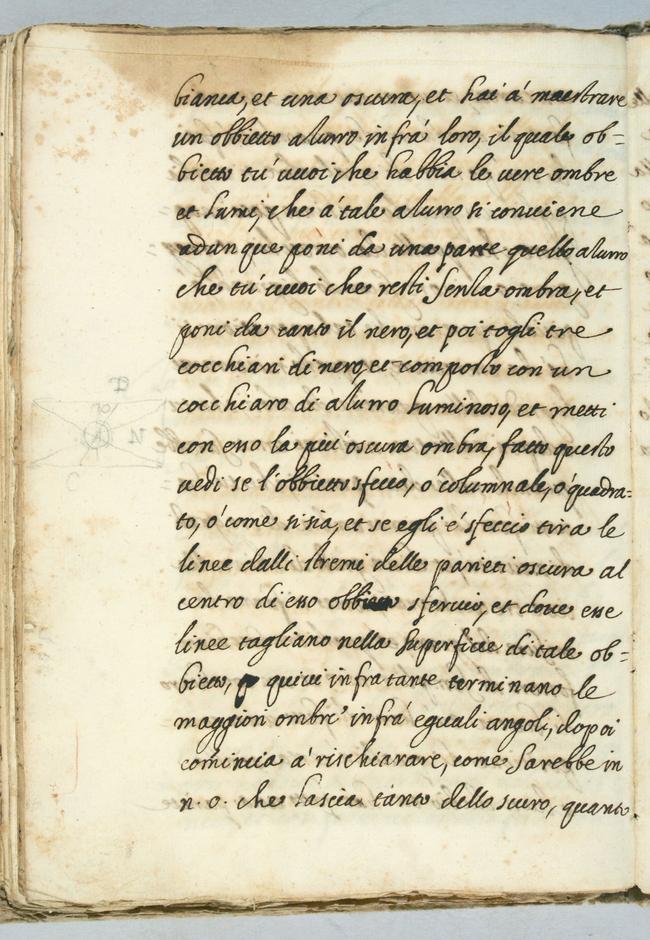 bianca, et una oscura, et hai á maestrare
un obbietto alurro infrá loro, il quale ob=
bietto tú vuoi che habbia le vere ombre
et lumi, che á tale alurro si conviene
adunque poni da una parte quello alurro
che tú vuoi che resti senla ombra, et
poni da canto il nero, et poi togli tre
cocchiari di nero, et composto con un
cocchiaro di alurro luminoso, et metti
con esso la piú oscura ombra, fatto questo
vedi se l'obbietto sfecio, ó columnale, ó quadra=
to, ó come si sia, et se egli é sfeccio tira le
linee dalli stremi delle parieti oscura al
centro di esso obbietto sfericio, et dove esse
linee tagliano nella superficie di tale ob=
bietto, quivi infra tante terminano le
maggiori ombre infrá eguali angoli, dopoi
comincia á rischiarare, come sarebbe in
n. o. che lascia tanto dello scuro, quanto